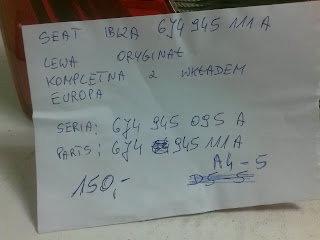 SEAT IBIZA 6J4 945 111 A
LEWA ORYGINAŁ
KOMPLETNA Z WKŁADEM
EUROPA
SERIA: 6J4 945 095 A
PARTS: 6J4 945 111 A
A4-5
150,-
D5-5